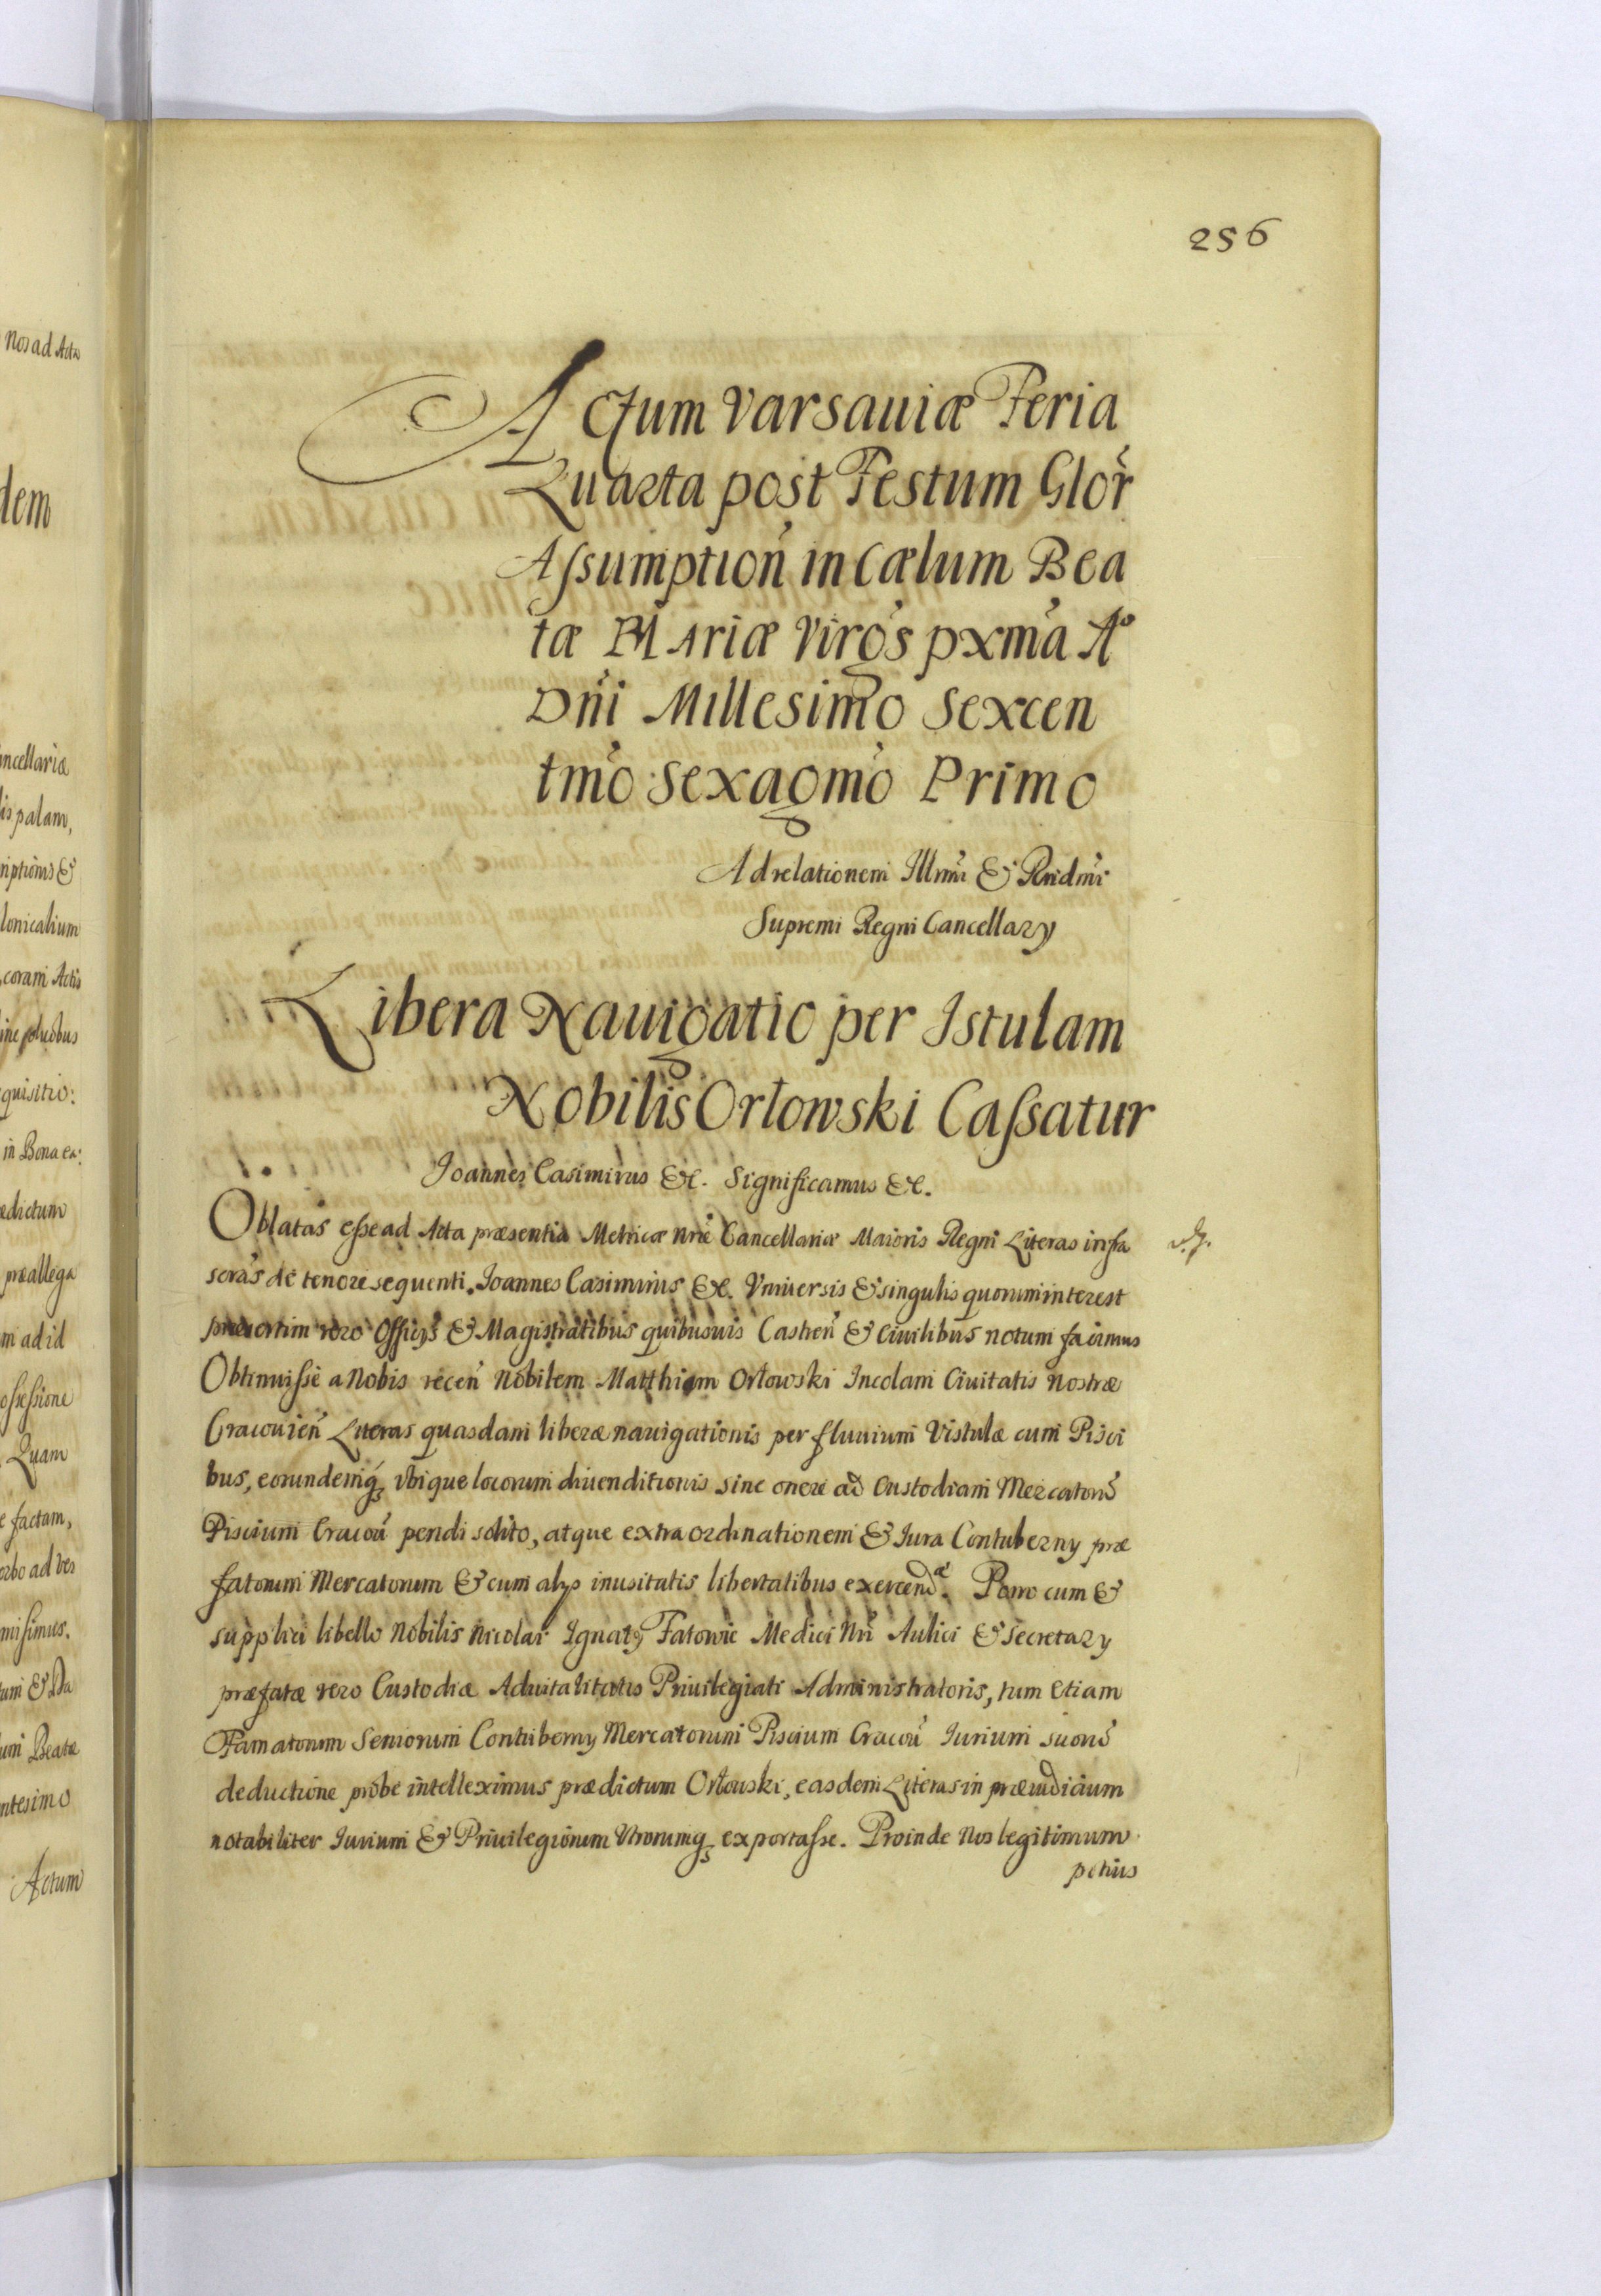 256
Actum Varsaviæ Feria
Quarta post Festum Glor̃
Assumption̄ in Cælum Bea
tæ Mariæ Virg̃s pxm̃a Aº
Dn̄i Millesimo Sexcen
tm̃o Sexagm̃o Primo
Ad relationem Illmi & Rndmi
Supremi Regni Cancellary
Libera Nauigatio per Istulam
Nobilis Orłowski Cassatur
Joannes Casimirus &c. Significamus &c.
Oblatas esse ad Acta præsentia Metricæ nr̃æ Cancellariæ Maioris Regni Literas infra
scr̃as de tenore sequenti. Joannes Casimirus &c. Vniuersis & singulis quorum interest
præsertim vero Officijs & Magistratibus quibusuis Castren̄ & Ciuilibus notum facimus
Obtinuisse a Nobis recen̄ Nobilem Matthiam Orłowski Incolam Ciuitatis Nostræ
Cracouien̄ Literas quasdam liberæ nauigationis per fluuium Vistulæ cum Pisci
bus, eorundemq; vbique locorum diuenditionis sine onere ad Custodiam Mercator̃
Piscium Cracou̅ pendi solito, atque extra ordinationem & Iura Contuberny præ
fatorum Mercatorum & cum alys inusitatis libertatibus exercendæ. Porro cum &
supplici libello Nobilis Nicolai Ignaty Fatowic Medici Nr̃i Aulici & Secretary
præfatæ vero Custodiæ Aduitalitatis Priuilegiati Administratoris, tum etiam
Famatorum Seniorum Contuberny Mercatorum Piscium Cracou̅ Iurium suor̃
deductione probe intelleximus prædictum Orłouski, easdem Literas in præiudicium
notabiliter Iurium & Priuilegiorum Vtrorumq; exportasse. Proinde Nos legitimum
petitis
Nos ad Acta
dem
ancellariæ
lis palam,
riptionis &
lonicalium
coram Actis
quisitio:
in Bona ea:
ædictum
præallega
m ad id
ossessione
Quam
e factam,
misimus.
um & Da
um Beatæ
ntesimo
Actum